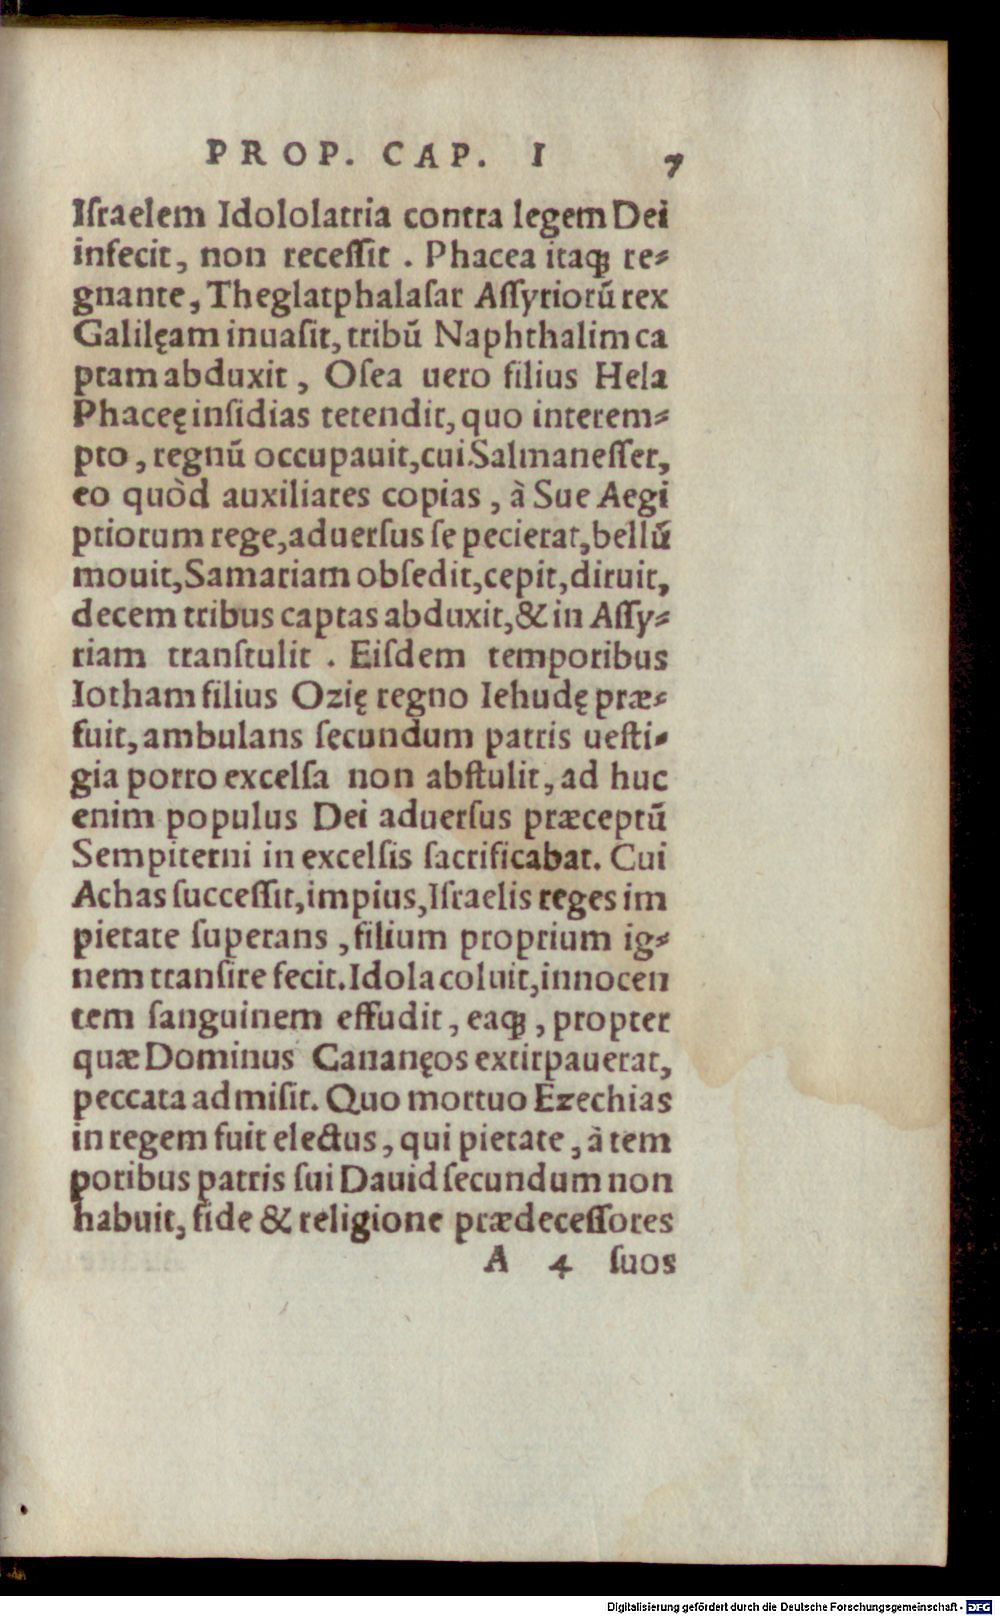 PROP. CAP. I 7
Iſraelem Idololatria contra legem Dei
infecit, non receſſit . Phacea itaq́ꝫ re⸗
gnante, Theglatphalaſar Aſſyriorū rex
Galilęam inuaſit, tribū Naphthalim ca
ptam abduxit, Oſea uero filius Hela
Phaceę inſidias tetendit, quo interem⸗
pto, regnū occupauit, cui Salmaneſſer,
eo quòd auxiliares copias, à Sue Aegi
ptiorum rege, aduerſus ſe pecierat, bellū
mouit, Samariam obſedit, cepit, diruit,
decem tribus captas abduxit, & in Aſſy⸗
riam tranſtulit . Eiſdem temporibus
Iotham filius Ozię regno Iehudę præ⸗
fuit, ambulans ſecundum patris ueſti⸗
gia porro excelſa non abſtulit, ad huc
enim populus Dei aduerſus præceptū
Sempiterni in excelſis ſacrificabat. Cui
Achas ſucceſſit, impius, Iſraelis reges im
pietate ſuperans, filium proprium ig⸗
nem tranſire fecit. Idola coluit, innocen
tem ſanguinem effudit, eaq́ꝫ, propter
quæ Dominus Cananęos extirpauerat,
peccata admiſit. Quo mortuo Ezechias
in regem fuit electus, qui pietate, à tem
poribus patris ſui Dauid ſecundum non
habuit, fide & religione prædeceſſores
A 4 ſuos
Digitalisierung gefördert durch die Deutsche Forschungsgemeinschaft - DFG